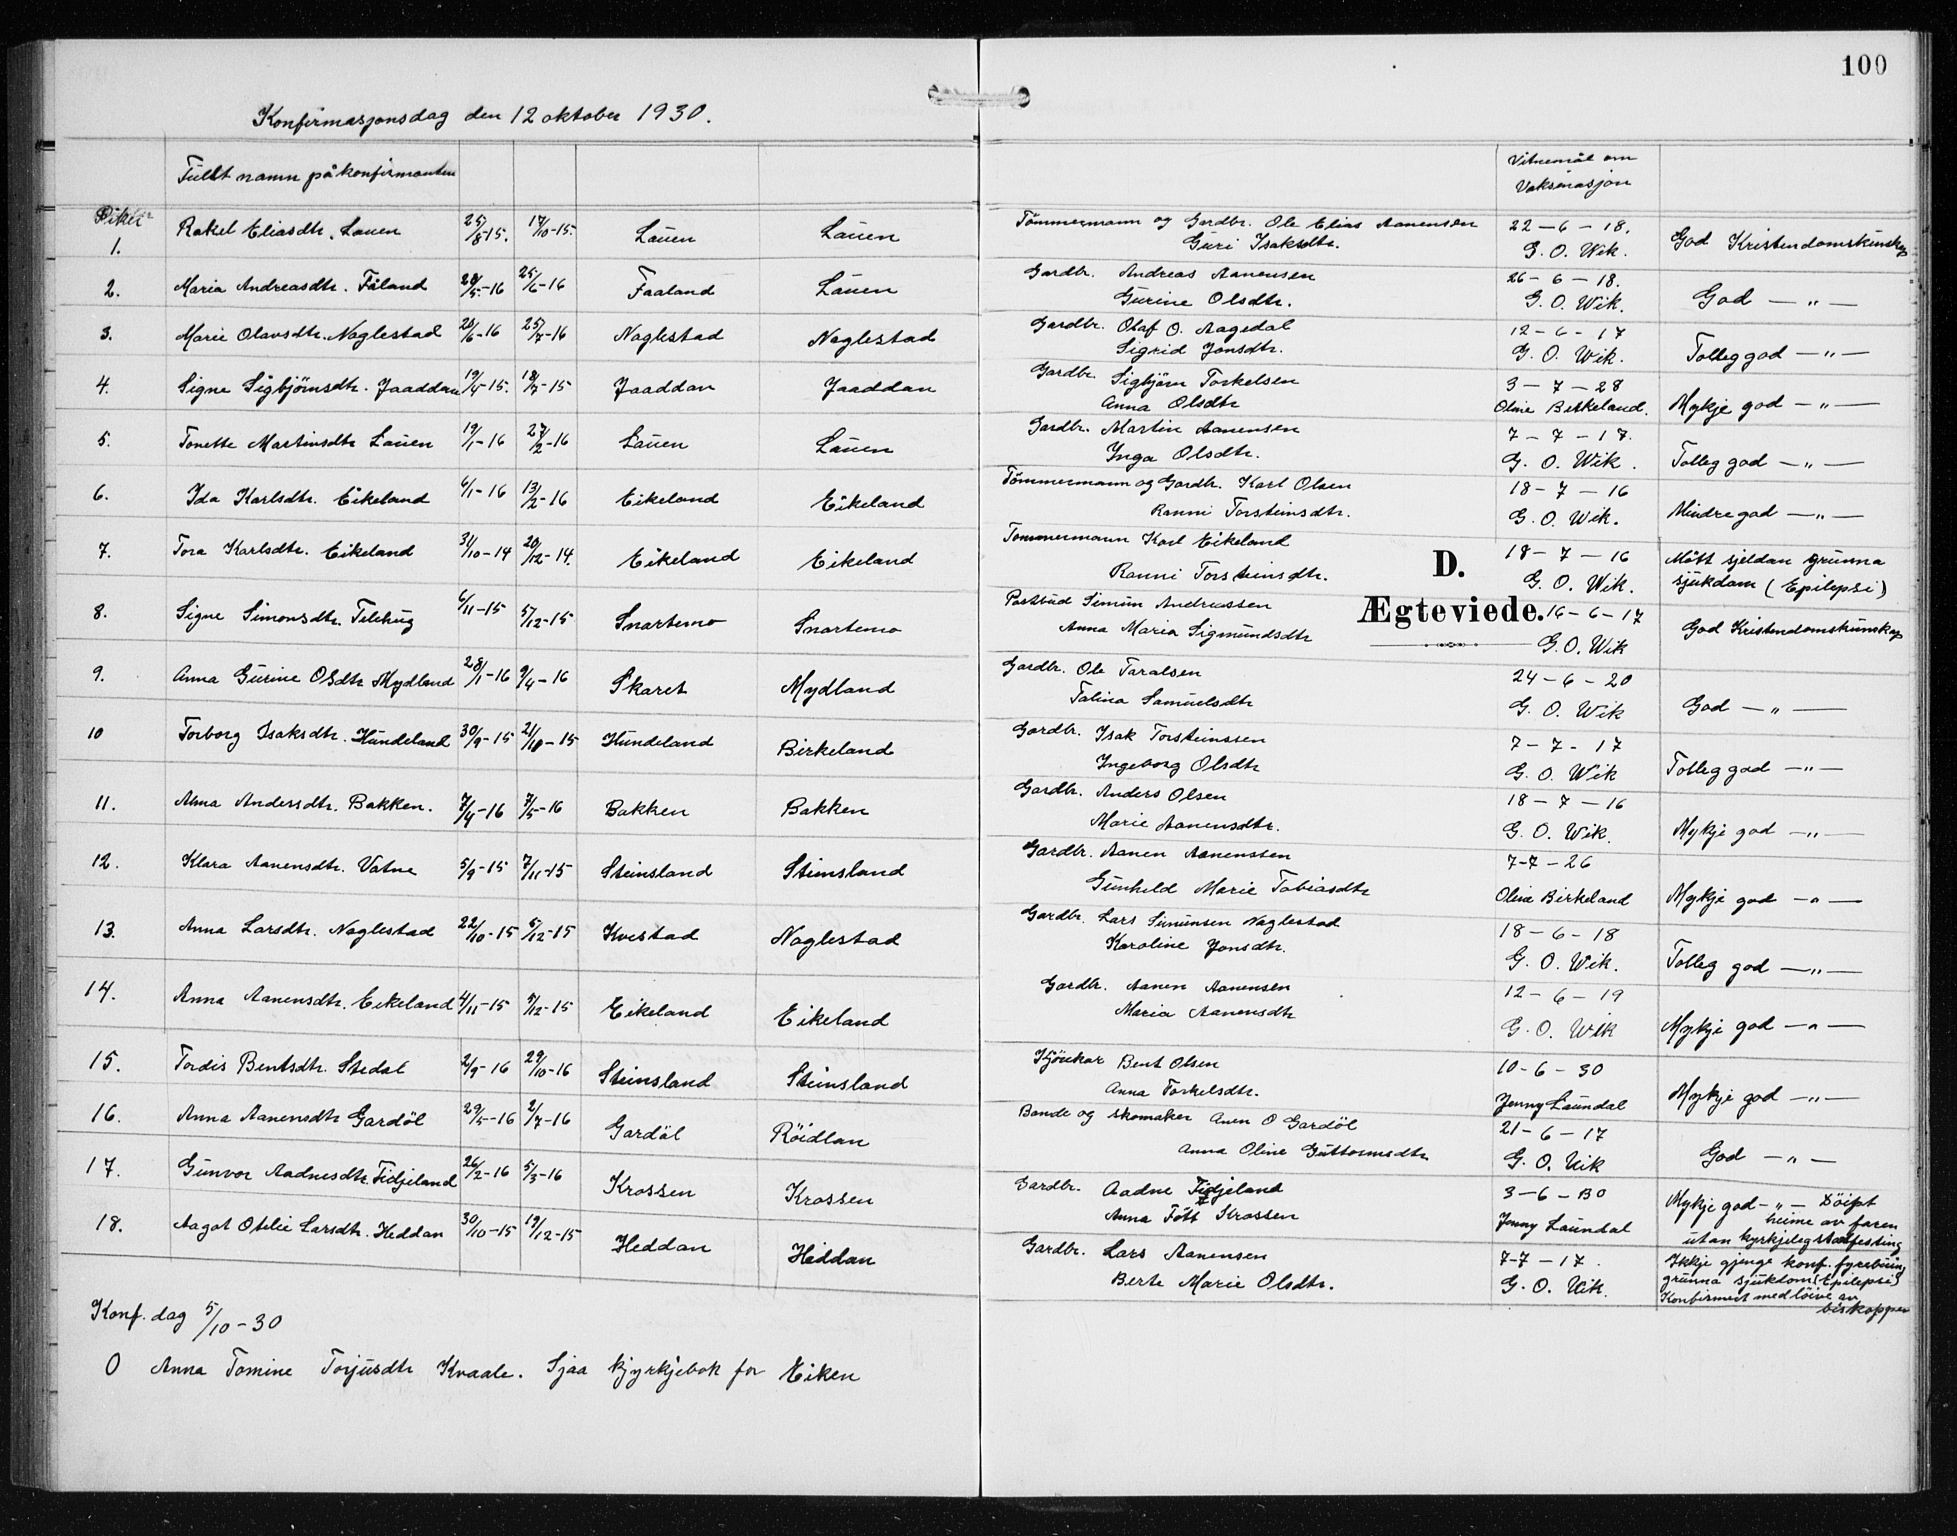 100
Konfirmasjonsdag den 12 oktober 1930.
Fullt namn på konfirmanten
Vitnemål om Vaksinasjon
Piker
1. Rakel Eliasdtr. Lauen 25/8-15. 17/10-15. Lauen Lauen Tömmermann og Gardbr. Ole Elias Aanensen 22-6-18. God Kristendomskunskap
Guri Isaksdtr. G. O. Wik.
2. Maria Andreasdtr. Fåland 20/5-16 25/6-16 Faaland Lauen Gardbr. Andreas Aanensen 26-6-18. God — " —
Gurine Olsdtr. G. O. Wik.
3. Marie Olavsdtr. Naglestad 20/6-16 25/7-16 Naglestad Naglestad Gardbr. Olaf O. Aagedal 12-6-17 Tolleg god — " —
Sigrid Jonsdtr. G. O. Wik.
4. Signe Sigbjörnsdtr. Jaaddan 19/4-15. 18/7-15 Jaaddan Jaaddan Gardbr. Sigbjörn Torkelsen 3-7-28 Mykje god — " —
Anna Olsdtr Oline Birkeland.
5. Tonette Martinsdtr Lauen 19/1-16 27/2-16 Lauen Lauen Gardbr. Martin Aanensen 7-7-17. Tolleg god — " —
Inga Olsdtr. G. O. Wik.
6. Ida Karlsdtr. Eikeland 6/1-16 13/2-16 Eikeland Eikeland Tömmermann og Gardbr. Karl Olsen 18-7-16 Mindre god — " —
Ranni Torsteinsdtr. G. O. Wik.
7. Tora Karlsdtr. Eikeland 31/10-14 20/12-14. Eikeland Eikeland Tömmermann Karl Eikeland 18-7-16 Mött sjeldan grunna
Ranni Torsteinsdtr. G. O. Wik. sjukdom (Epilepsi)
D.
Ægteviede.
8. Signe Simonsdtr. Telhug 6/11-15 5/12-15 Snartemo Snartemo Postbud Simon Andreassen 16-6-17 God Kristendomskunskap
Anna Maria Sigmundsdtr G. O. Wik
9. Anna Gurine Olsdtr Mydland 28/1-16 9/4-16 Skaret Mydland Gardbr. Ole Taralsen 24-6-20 God — " —
Talina Samuelsdtr G. O. Wik
10 Torborg Isaksdtr. Hundeland 30/9-15 21/10-15 Hundeland Birkeland Gardbr. Isak Torsteinssen 7-7-17 Tolleg god — " —
Ingeborg Olsdtr G. O. Wik
11. Anna Andersdtr. Bakken. 7/4-16 7/5-16 Bakken Bakken Gardbr. Anders Olsen 18-7-16 Mykje god — " —
Marie Aanensdtr. G. O. Wik.
12. Klara Aanensdtr. Vatne 5/9-15 7/11-15 Steinsland Steinsland Gardbr. Aanen Aanenssen 7-7-26 Mykje god — " —
Gunhild Marie Tobiasdtr Oline Birkeland
13. Anna Larsdtr. Naglestad 22/10-15 5/12-15 Kvestad Naglestad Gardbr. Lars Simunsen Naglestad 18-6-18 Tolleg god — " —
Karoline Jonsdtr. G. O. Wik.
14. Anna Aanensdtr. Eikeland 4/11-15 5/12-15 Eikeland Eikeland Gardbr. Aanen Aanensen 12-6-19 Mykje god — " —
Maria Aanensdtr G. O. Wik
15. Tordis Bentsdtr. Stedal 2/9-16 29/10-16 Steinsland Steinsland Bent Olsen 10-6-30 Mykje god — " —
Anna Torkelsdtr. Jenny Laundal
16. Anna Aanensdtr Gardöl 29/5-16 2/7-16 Gardöl Röidlan Bonde og skomaker Anen O Gardöl 21-6-17 God — " —
Anna Oline Guttormsdtr G. O. Wik
17. Gunvor Aadnesdtr Tidjeland 26/2-16 5/3-16 Krossen Krossen Gardbr. Aadne Tidjeland 3-6-30 Mykje god — " — Döipt
Anna Fött Krossen Jenny Laundal heime av faren
utan kyrkjeleg stadfesting
18. Aagot Otilie Larsdtr. Heddan 30/10-15 19/12-15 Heddan Heddan Gardbr. Lars Aanensen 7-7-17. Ikkje gjenge konf. fyrebuing
Berte Marie Olsdtr. G. O. Wik. grunna sjukdom (Epilepsi)
Konfirmert med löive av
biskoppen
Konf. dag 5/10-30
0 Anna Tomine Torjusdtr Kvaale. Sjaa kyrkjebok for Eiken